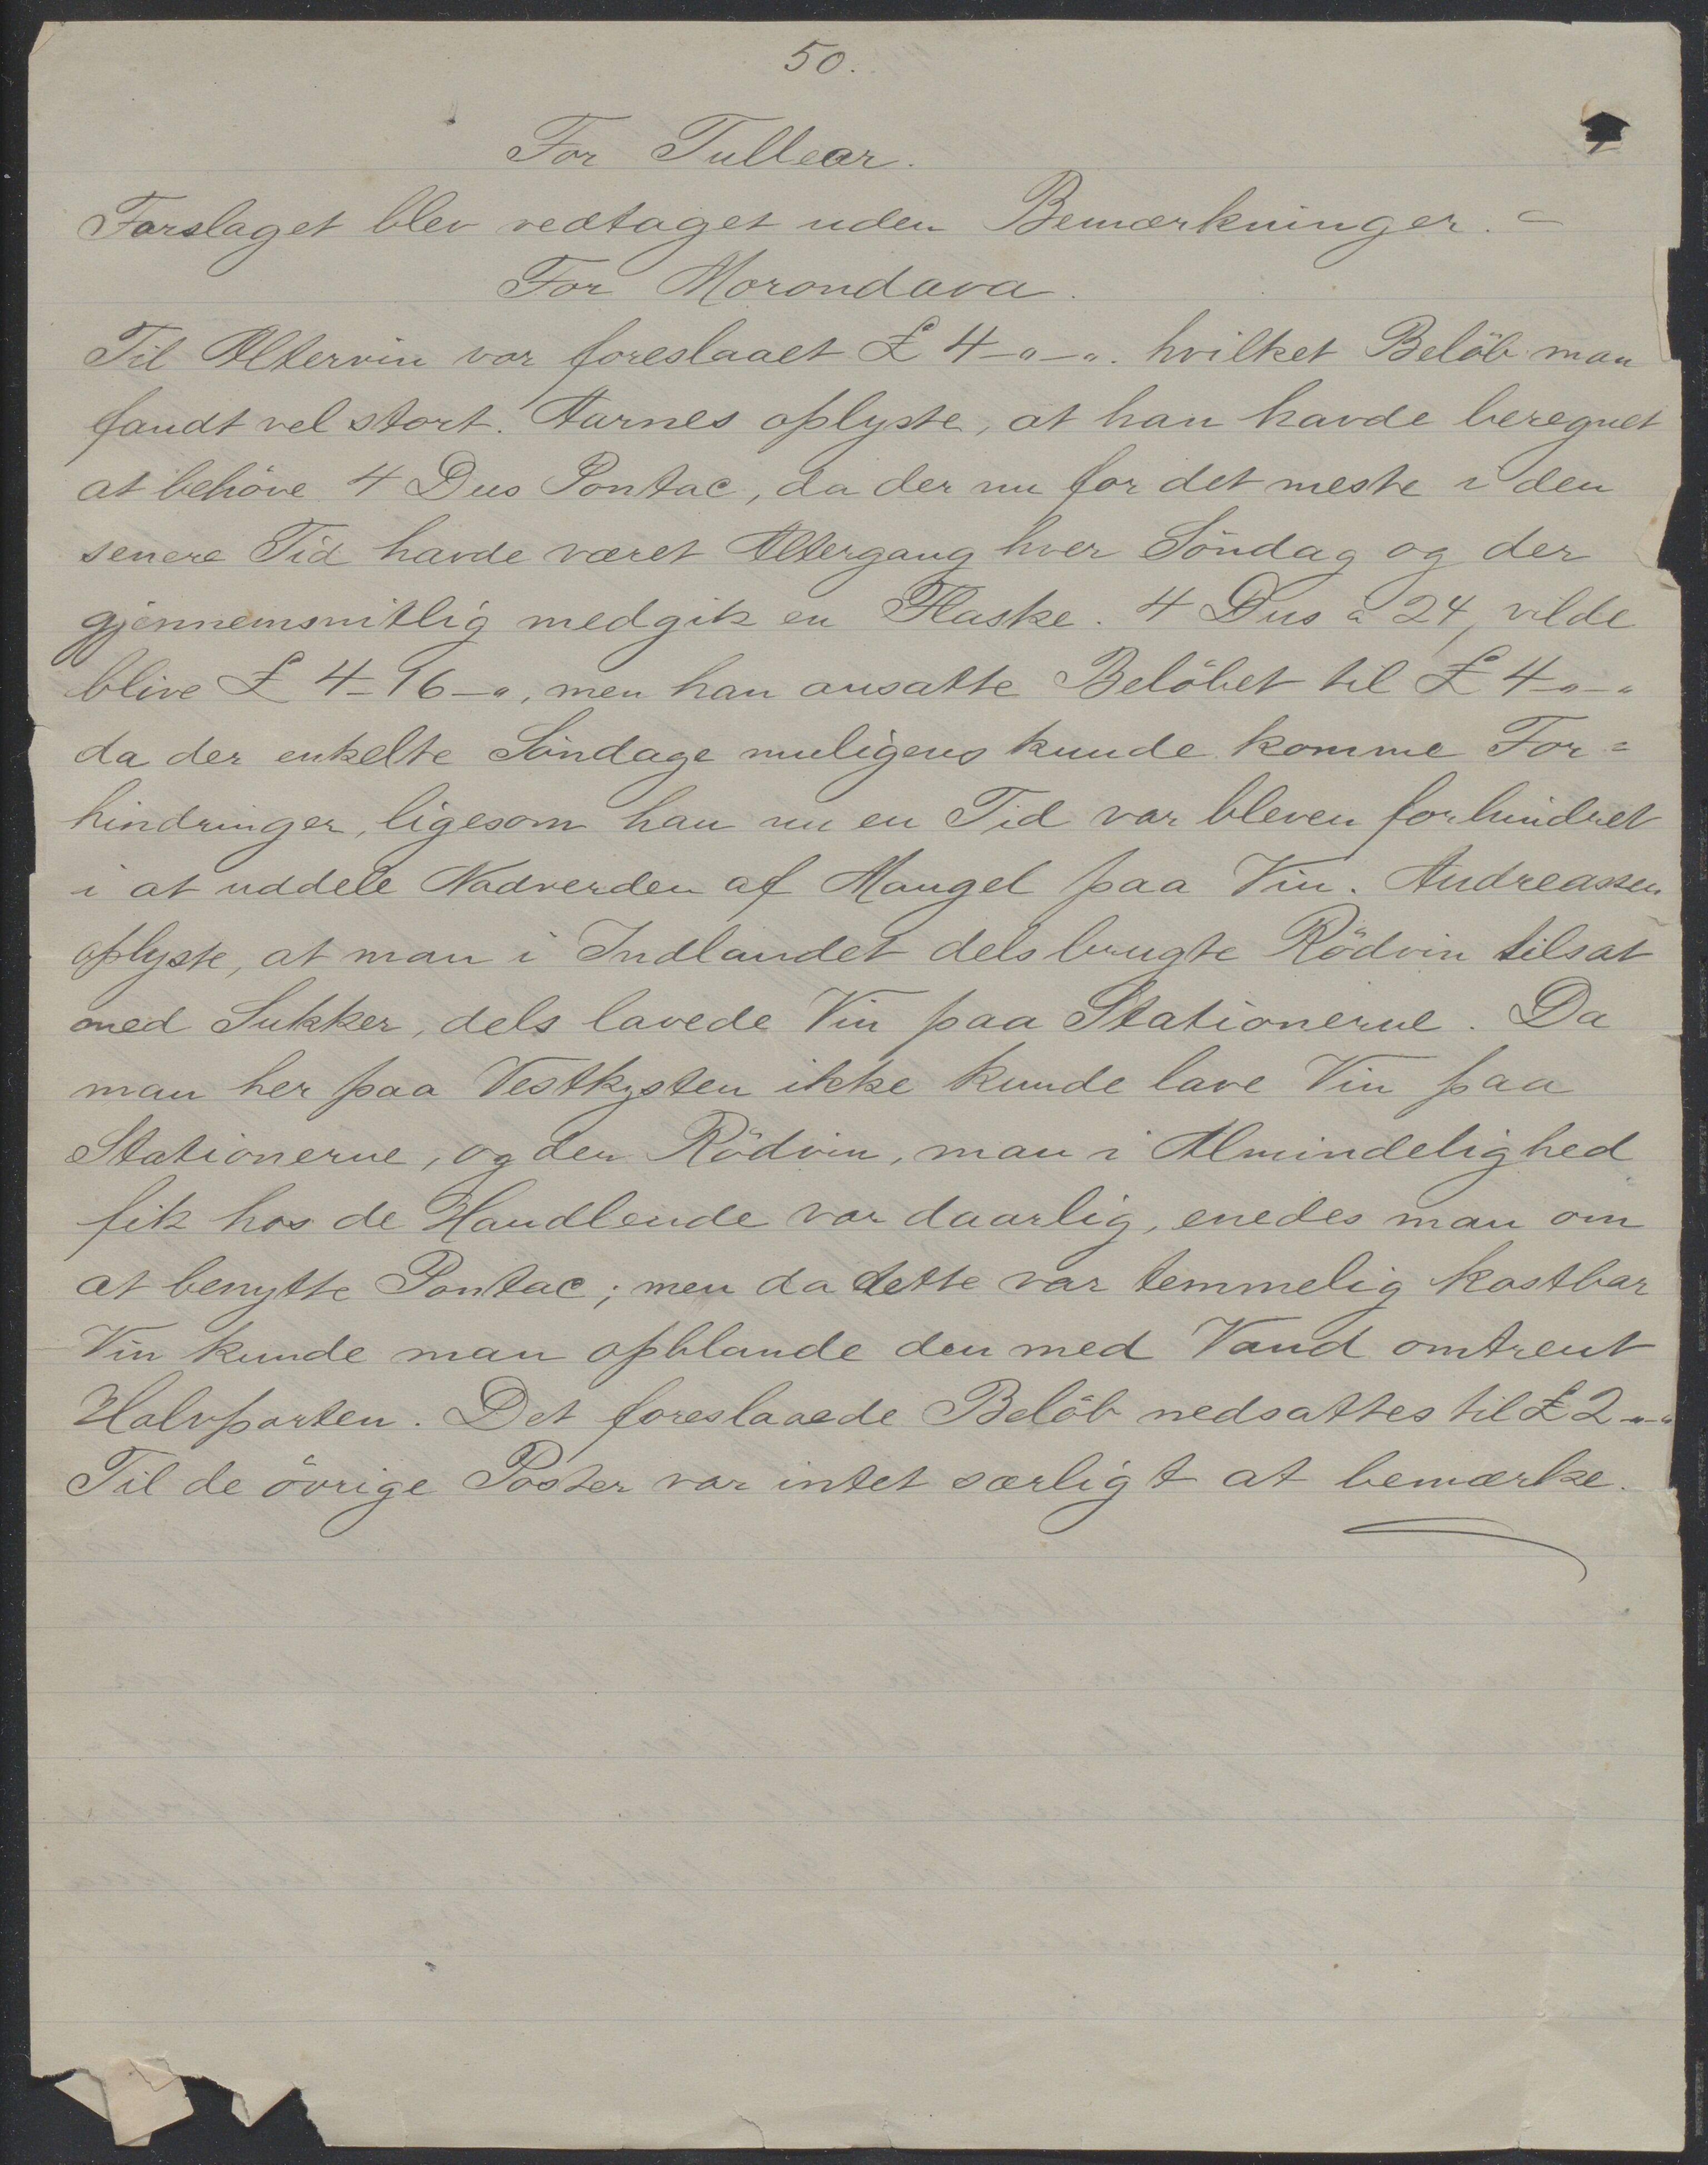 50.
For Tullear.
Forslaget blev vedtaget uden Bemærkninger. =
For Morondava.
Til Altervin var foreslaaet £ 4-"-". hvilket Beløb man
fandt vel stort. Aarnes oplyste, at han havde beregnet
at behöve 4 Dus Pontac, da der nu for det meste i den
senere Tid havde været Altergang hver Söndag og der
gjennemsnitlig medgik en Flaske. 4 Dus à 24/ vilde
blive £ 4-16-", men han ansatte Belöbet til £ 4-"-"
da der enkelte Söndage muligens kunde komme For=
hindringer, ligesom han nu en Tid var bleven forhindret
i at uddele Nadverden af Mangel paa Vin. Andreassen
oplyste, at man i Indlandet dels brugte Rödvin tilsat
med Sukker, dels lavede Vin paa Stationerne. Da
man her paa Vestkysten ikke kunde lave Vin paa
Stationerne, og den Rödvin, man i Almindelighed
fik hos de Handlende var daarlig, enedes man om
at benytte Pontac; men da dette var temmelig kostbar
Vin kunde man opblande den med Vand omtrent
Halvparten. Det foreslaaede Belöb nedsattes til £ 2-"-"
Til de övrige Poster var intet særligt at bemærke.